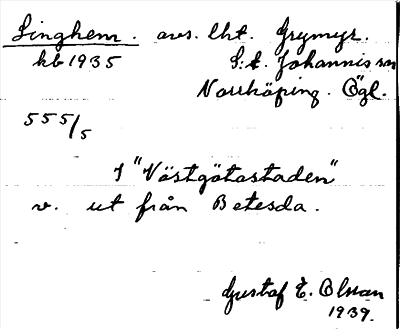 Singhem. avs. lht. Grymyr.
kb 1935 S:t Johannis sn
Norrköping. Ögl.
555/5
I "Västgötastaden"
v. ut från Betesda.
Gustaf E. Olsson
1939.